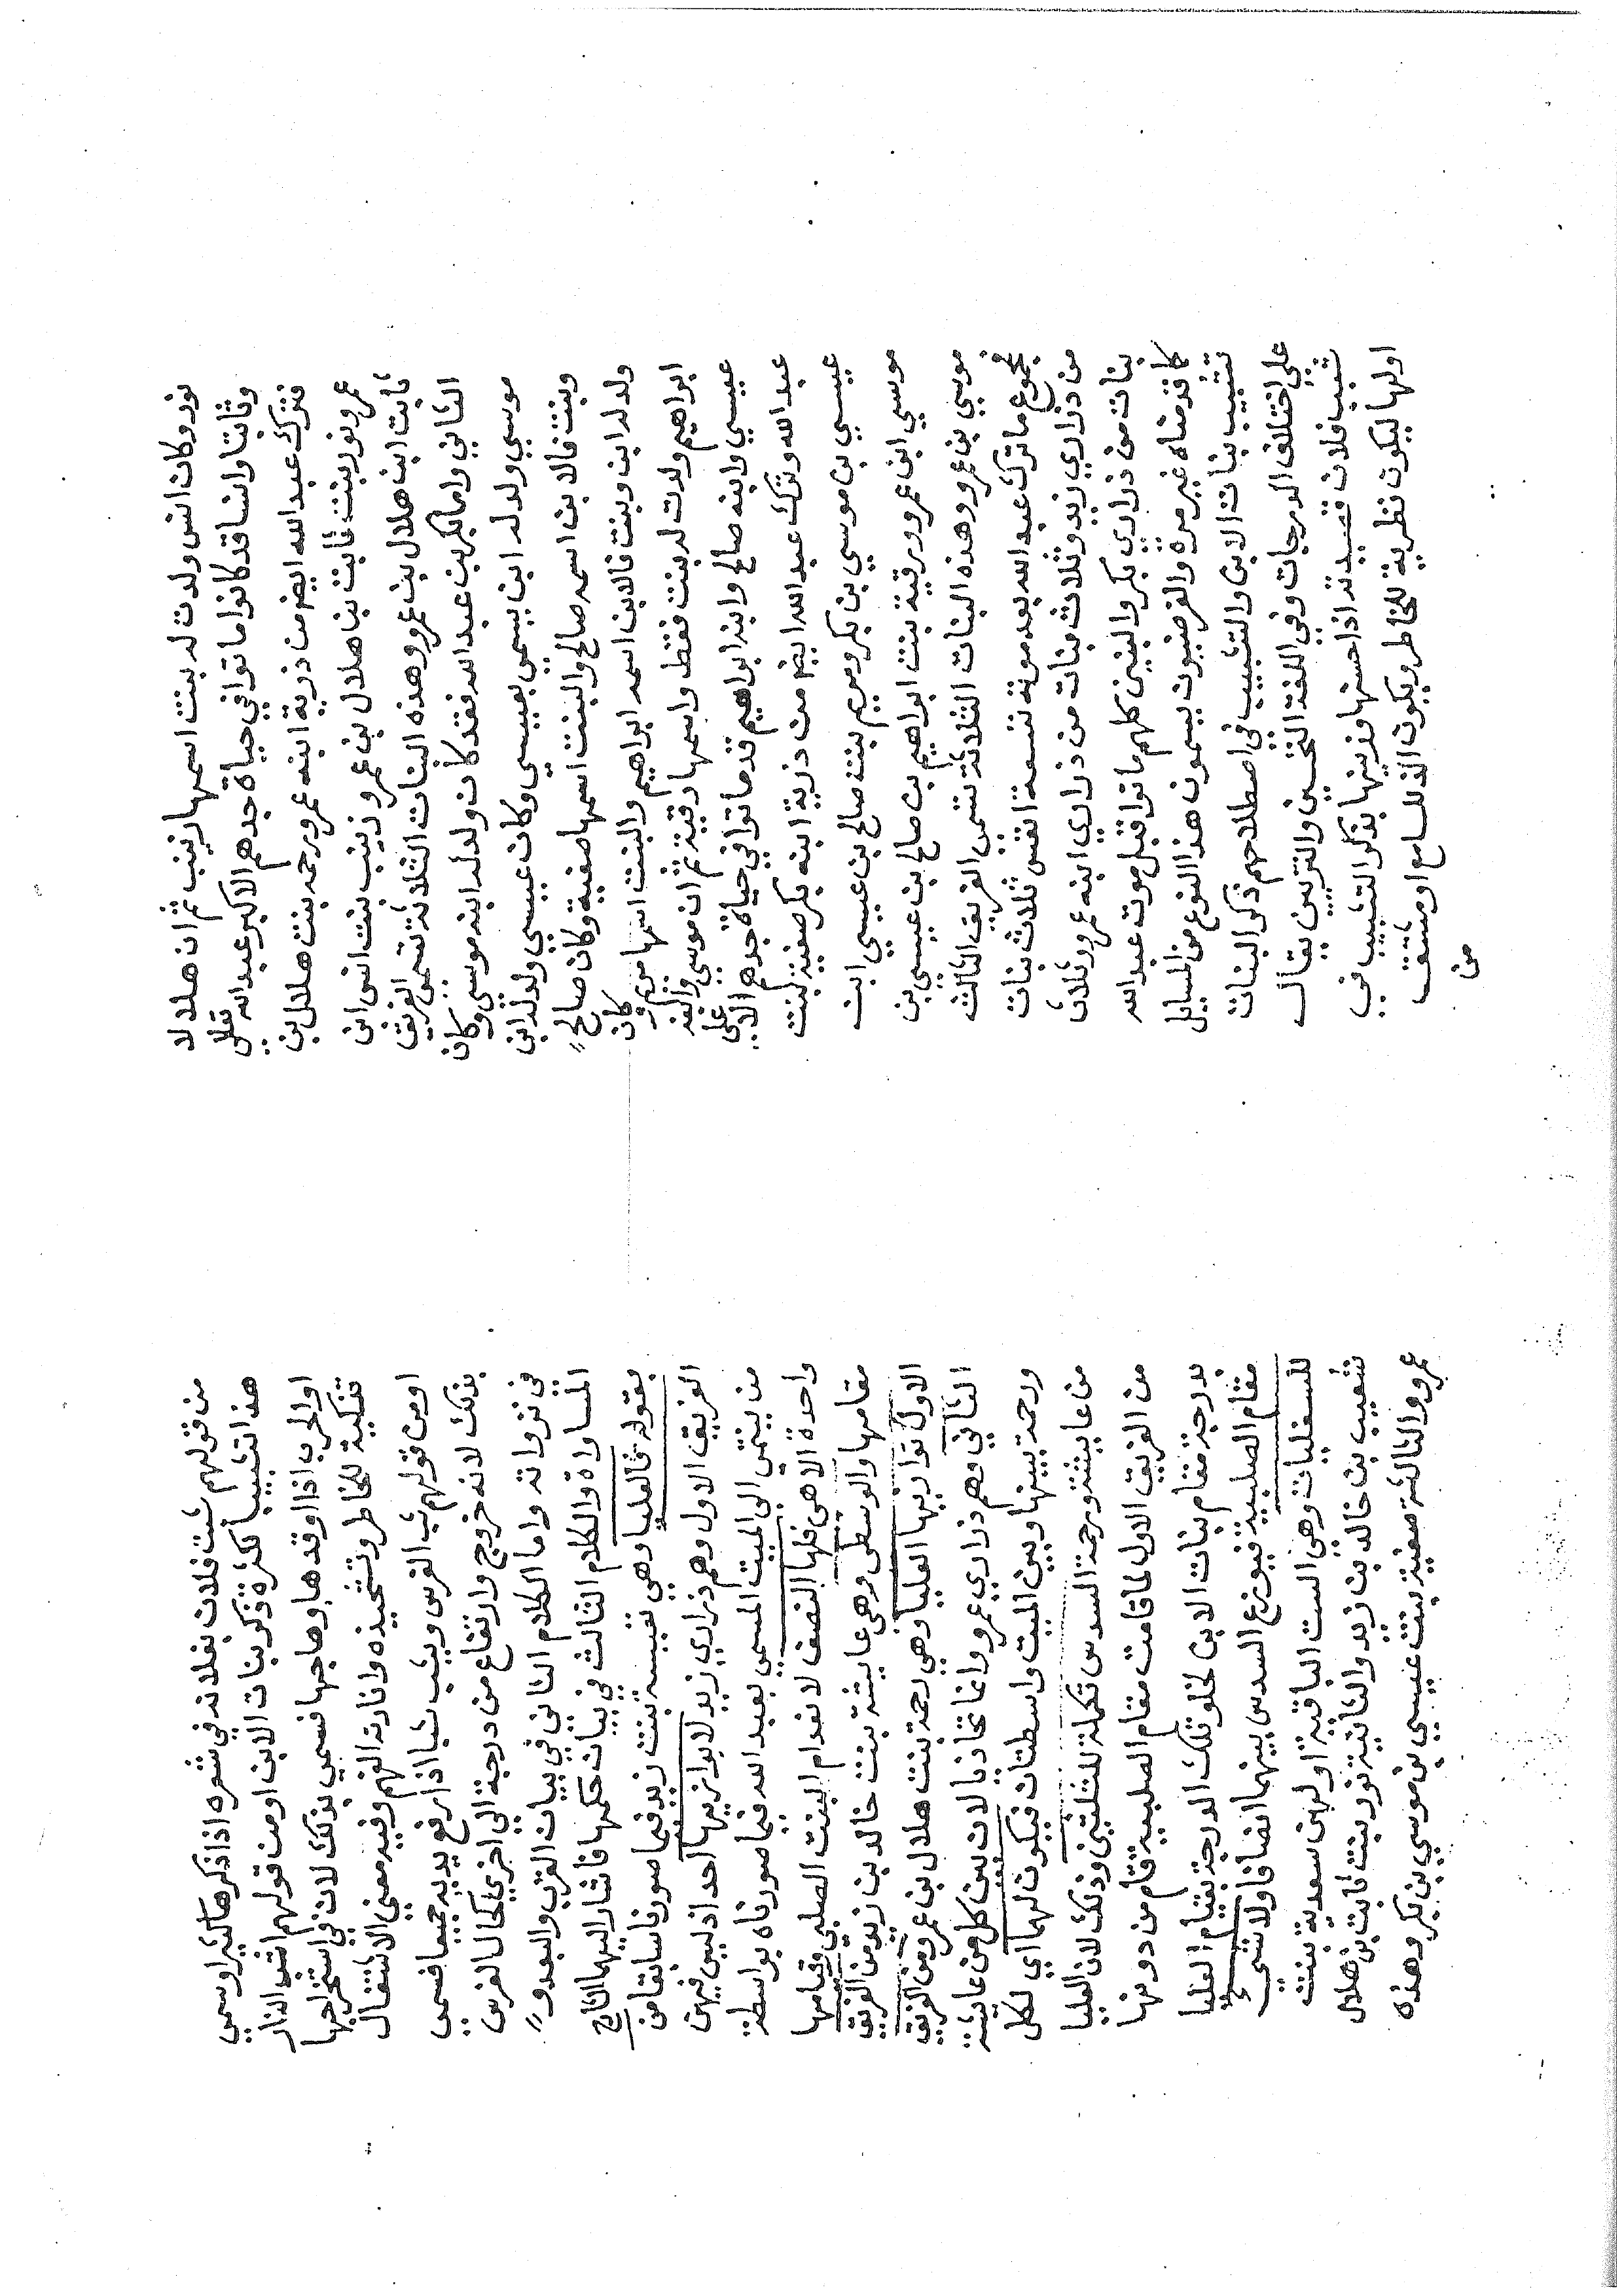 نور وكان انس ولدت له بنت اسمها زينب ثم ان هلالا
وثابتا وانسا قد كانوا ماتوا في حياة جدهم الاكبر عبدالله
فترك عبدالله ايضا من ذرية ابنه عمرو رحمه بنت هلال بن
عمرو نور بنت ثابت بن هلال بن عمرو زينب بنت انس ابن
ثابت ابن هلال بن عمرو وهذه البنات الثلاثة تسمى الفريق
الثاني واما بكر بن عبدالله فقد كان ولد له ابنه موسى وكان
موسي ولد له ابن يسمى بعيسي وكان عيسي ولد له ابن
وبنت فالابن اسمه صالح والبنت اسمها صفية وكان صالح
ولد له ابن وبنت فالابن اسمه ابراهيم والبنت اسمها مريم وكان
ابراهيم ولدت له بنت فقط واسمها رقية ثم ان موسي وابنه
عيسي وابنه صالح وابنه ابراهيم قد ماتوا في حياة جدهم الاعلى
عبدالله وترك عبدالله ايضا من ذرية ابنه بكر صفية بنت
عيسي بن موسي بن بكر ومريم بنت صالح بن عيسي ابن
موسي ابن عمرو ورقية بنت ابراهيم بن صالح بن عيسي بن
موسي بن عمرو وهذه البنات الثلاثة تسمى الفريق الثالث
فمجموع ما ترك عبدالله بعد موته تسعة انفس ثلاث بنات
من ذراري زيد وثلاث بنات من ذراري ابنه عمرو وثلاث
بنات من ذراري بكر والبنين كلهم ماتوا قبل موت عبدالله
كما قدمناه غير مرة والفرضيون يسمون هذا النوع من المسايل
تشبيب بنات الابن والتشبيب في اصطلاحهم ذكر البنات
علي اختلاف الدرجات وفي اللغة التحسين والتزيين يقال
شبب فلان قصيدته اذا حسنها وزينها بذكر التشبيب في
اولها ليكون تطرية للخاطر ويكون الذ للسامع او مشتق
من
من قولهم شبب فلان بفلانة في شعره اذا ذكرها كثيرا وسمي
هذا تشبيبا لكثرة ذكر بنات الابن او من قولهم اشب النار
او الحرب اذا اوقدها وهاجها فسمي بذلك لان في استخراجها
تذكية للخاطر وتشحيذه وانارة الفهم وفيه معنى الانتقال
او من قولهم شب الفرس ويشب شبا اذا رفع يديه جميعا فسمى
بذلك لانه خروج وارتفاع من درجة الي اخري كحال الفرس
في نزواته واما الكلام الثاني في بيان القرب والبعد و
المساواة والكلام الثالث في بيان حكمها فاشار اليها الشارح
بقوله فالعليا وهي نفيسة بنت زيد فيما صورنا سابقا من
الفريق الاول وهم ذراري زيد لا يوازيها احد اذ ليس فيهن
من ينتمي الى الميت المسمى بعبد الله فيما صورناه بواسطة
واحدة الا هي فلها النصف لانعدام البنت الصلبي وقيامها
مقامها والوسطى وهي عايشة بنت خالد بن زيد من الفريق
الاول توازيها العليا وهي رحمة بنت هلال بن عمرو من الفريق
الثاني وهم ذراري عمرو وانما تحاذيا لان بين كل من عايشة
ورحمة بينها وبين الميت واسطتان فيكون لهما اي لكل
من عايشة ورحمة السدس تكملة للثلثين وذلك لان العليا
من الفريق الاول لما قامت مقام الصلبية قام من دونها
بدرجة مقام بنات الابن لخلو تلك الدرجة بقيام العليا
مقام الصلبية فيوزع السدس بينهما انصافا ولا شيء
للسفليات وهي الست الباقية اولهن سعدية بنت
شعيب بن خالد بن زيد والثانية نور بنت ثابت بن هلال
عمرو والثالثة صفية بنت عيسي بن موسي بن بكر وهذه